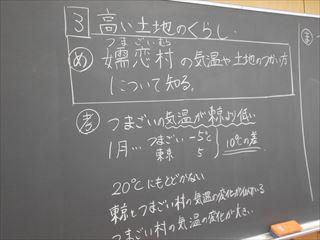 3 高い土地のくらし
つまごいむら
め 嬬恋村の気温や土地のつかい方
について知る。
考 つまごいの気温が東京より低い
1月… つまごい -5℃
東京 5
10℃の差
20℃にもとどかない
東京とつまごい村の気温の変化が似ている
つまごい村の気温の変化が大きい
ま